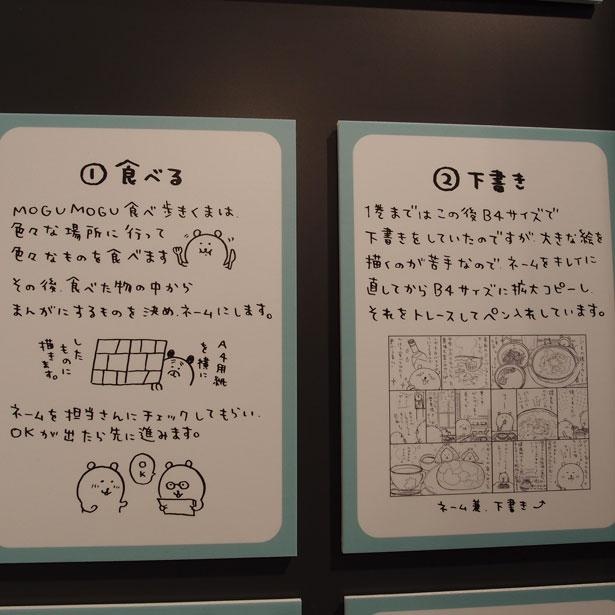 ① 食べる
MOGUMOGU食べ歩きくまは、
色々な場所に行って
色々なものを食べます
その後、食べた物の中から
まんがにするものを決め、ネームにします。
A4用紙
を横に
した
ものに
描きます。
ネームを担当さんにチェックしてもらい、
OKが出たら先に進みます。
OK
② 下書き
1巻まではこの後B4サイズで
下書きをしていたのですが、大きな絵を
描くのが苦手なので、ネームをキレイに
直してからB4サイズに拡大コピーし、
それをトレースしてペン入れしています。
ネーム兼、下書き